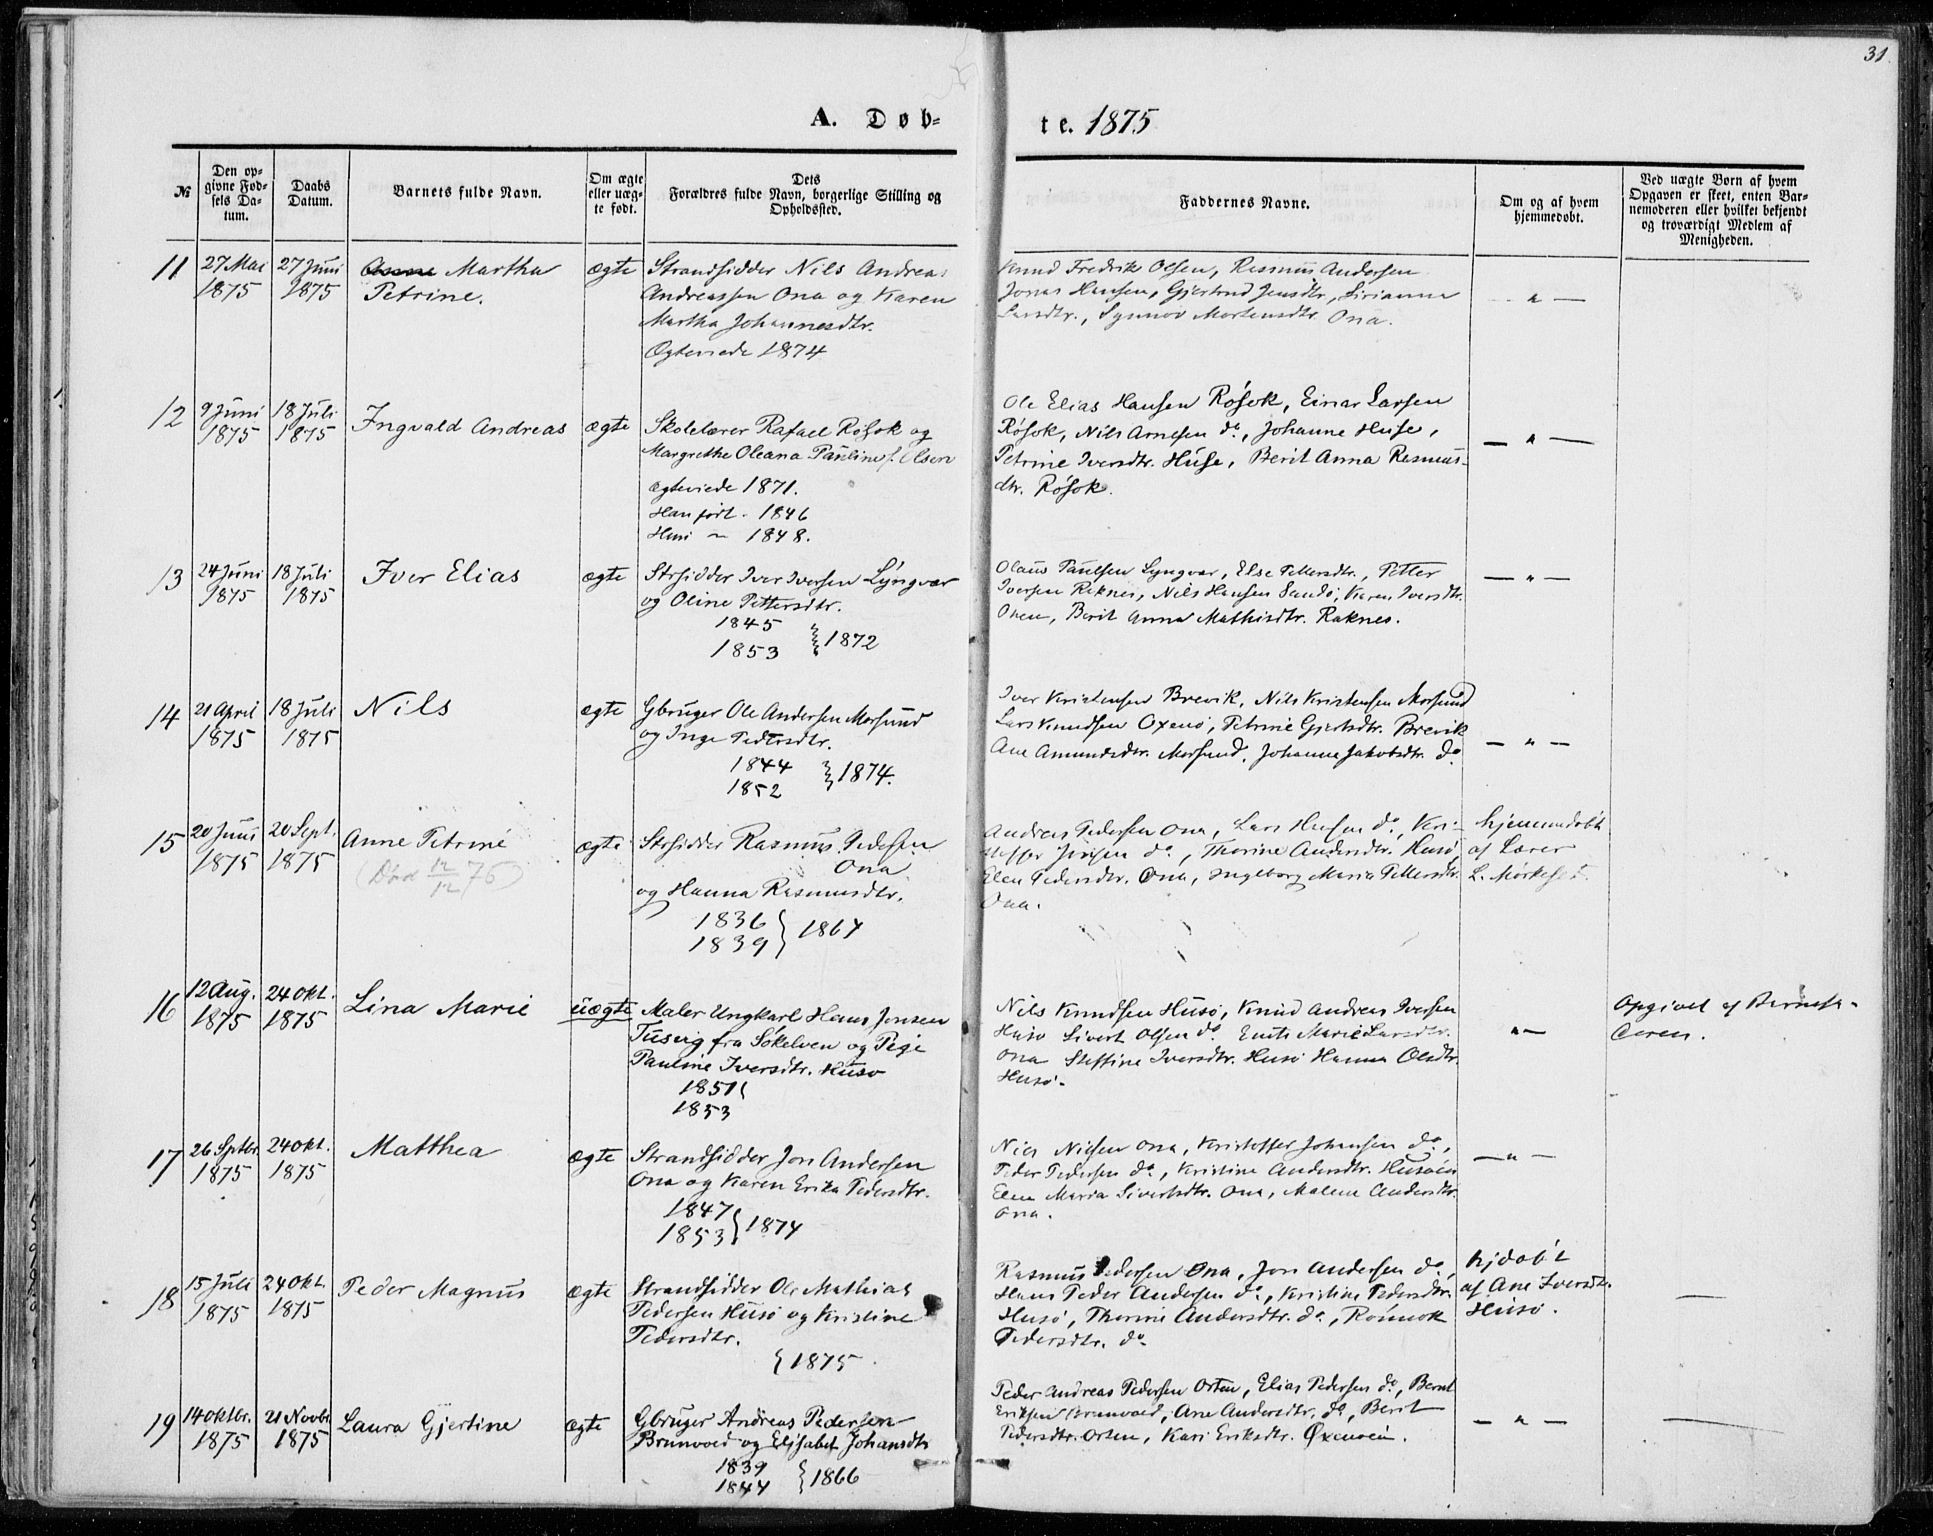 31
A. Døb-
te. 1875
№
Den op-
givne Fød-
sels Da-
tum.
Daabs
Datum.
Barnets fulde Navn.
Om ægte
eller uæg-
te født.
Dets
Forældres fulde Navn, borgerlige Stilling og
Opholdssted.
Faddernes Navne.
Om og af hvem
hjemmedøbt.
Ved uægte Børn af hvem
Opgaven er skeet, enten Bar-
nemoderen eller hvilket bekjendt
og troværdigt Medlem af
Menigheden.
11
27 Mai
1875
27 Juni
1875
Anne Martha
Petrine.
ægte
Strandsidder Nils Andreas
Andreassen Ona og Karen
Martha Johannesdtr.
Ægteviede 1874
Knud Fredrik Olsen, Rasmus Andersen
Jonas Hansen, Gjertrud Jensdtr, Sirianna
Larsdtr., Synnøv Mortensdtr. Ona.
— " —
12
9 Juni
1875
18 Juli
1875
Ingvald Andreas
ægte
Skolelærer Rafael Røsok og
Margrethe Oleana Pauline f. Olsen
ægteviede 1871.
Han født. 1846
Hun — 1848.
Ole Elias Hansen Røsok, Einar Larsen
Røsok, Nils Arnesen do., Johanne Huse,
Petrine Iversdtr. Huse, Berit Anna Rasmus-
dtr. Røsok.
— " —
13
24 Juni
1875
18 Juli
1875
Iver Elias
ægte
Strsidder Iver Iversen Lyngvær
og Oline Pettersdtr.
1845
1853 } 1872
Olaus Paulsen Lyngvær, Else Pettersdtr., Petter
Iversen Reknes, Nils Hansen Sandø, Karen Iversdtr.
Onen, Berit Anna Mathisdtr. Raknes.
— " —
14
21 April
1875
18 Juli
1875
Nils
ægte
Gbruger Ole Andersen Morsund
og Inge Pedersdtr.
1844
1852 } 1874.
Iver Kristensen Brevik, Nils Kristensen Morsund
Lars Knudsen Oxenø, Petrine Gjertsdtr. Brevik
Ane Amundsdtr. Morsund, Johanne Jakobsdtr. do.
— " —
15
20 Juni
1875
20 Sept.
1875
Anne Petrine
(Død 12/12 76)
ægte
Strsidder Rasmus Pedersen
Ona
og Hanna Rasmusdtr.
1836
1839 } 1867
Andreas Pedersen Ona, Lars Hansen do., Kri-
stoffer Jensen do., Thorine Andersdtr. Husø,
Elen Pedersdtr. Ona, Ingeborg Maria Pettersdtr.
Ona.
hjemmedøbt
af Lærer
L. Mørkeset.
16
12 Aug.
1875
24 Okt.
1875
Lina Marie
uægte
Maler Ungkarl Hans Jensen
Tusvig fra Søkelven og Pige
Pauline Iversdtr. Husø
1851
1853
Nils Knudsen Husø, Knud Andreas Iversen
Husø Sivert Olsen do. Enit Marie Larsdtr.
Ona Steffine Iversdtr. Husø Hanna Olsdtr.
Husø.
" —
Opgivet af Barnefa-
deren.
17
26 Septbr.
1875
24 Okt.
1875
Matthea
ægte
Strandsidder Jon Andersen
Ona og Karen Erika Pedersdtr.
1847
1853 } 1874
Nils Nilsen Ona, Kristoffer Johansen do.,
Peder Pedersen do., Kristine Andersdtr. Husøen
Elen Maria Sivertsdtr. Ona, Malene Andersdtr.
Ona.
— " —
18
15 Juli
1875
24 Okt.
1875
Peder Magnus
ægte
Strandsidder Ole Mathias
Pedersen Husø og Kristine
Pedersdtr.
} 1875.
Rasmus Pedersen Ona, Jon Andersen do.,
Hans Peder Andersen do., Kristine Pedersdtr.
Husø, Thorine Andersdtr. do., Rønnok
Pedersdtr. do.
hjdøbt
af Ane Iversdtr.
Husø.
—
19
14 Oktbr.
1875
21 Novbr.
1875
Laura Gjertine
ægte
Gbruger Andreas Pedersen
Brunvold og Elisabet Johansdtr
1839
1844 } 1866
Peder Andreas Pedersen Orten, Elias Pedersen do., Bernt
Eriksen Brunvold, Ane Andersdtr. do., Berit
Pedersdtr. Orten, Kari Eriksdtr. Oxenøen.
— " —
—